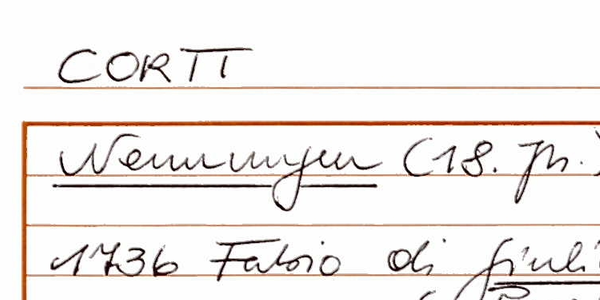 CORTI
Nenningen (18. Jh.)
1736 Fabio di Giuli